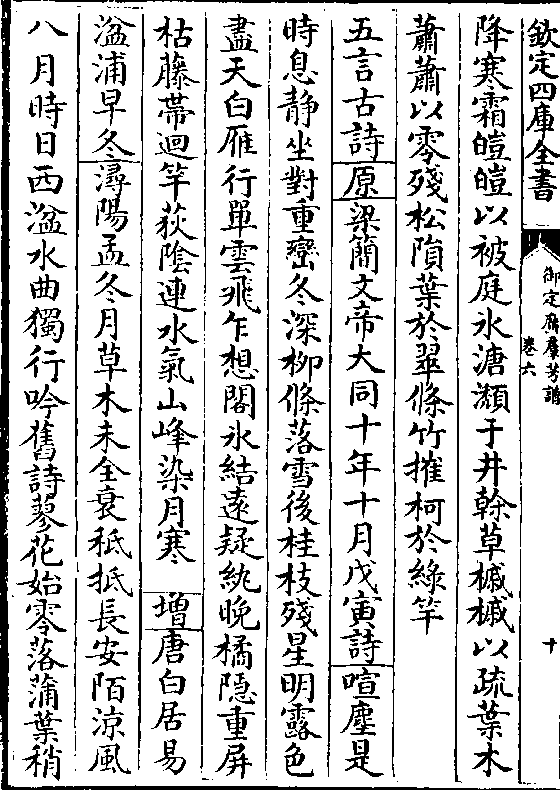 欽定四庫全書
御定廣羣芳譜
卷六
十
降寒霜皚皚以被庭水溏瀩于井幹草槭槭以疏葉木
蕭蕭以零殘松隕葉於翠條竹摧柯於綠竿
五言古詩原梁簡文帝大同十年十月戊寅詩喧塵是
時息静坐對重巒冬深柳條落雪後桂枝殘星明露色
盡天白雁行單雲飛乍想閣氷結遠疑紈晚橘隱重屏
枯藤帶迴竿荻陰連水氣山峰染月寒　增唐白居易
湓浦早冬潯陽孟冬月草木未全衰秪抵長安陌涼風
八月時日西湓水曲獨行吟舊詩蓼花始零落蒲葉稍